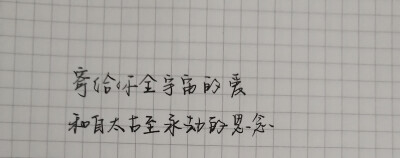 寄给你全宇宙的爱
和自太古至永劫的思念.